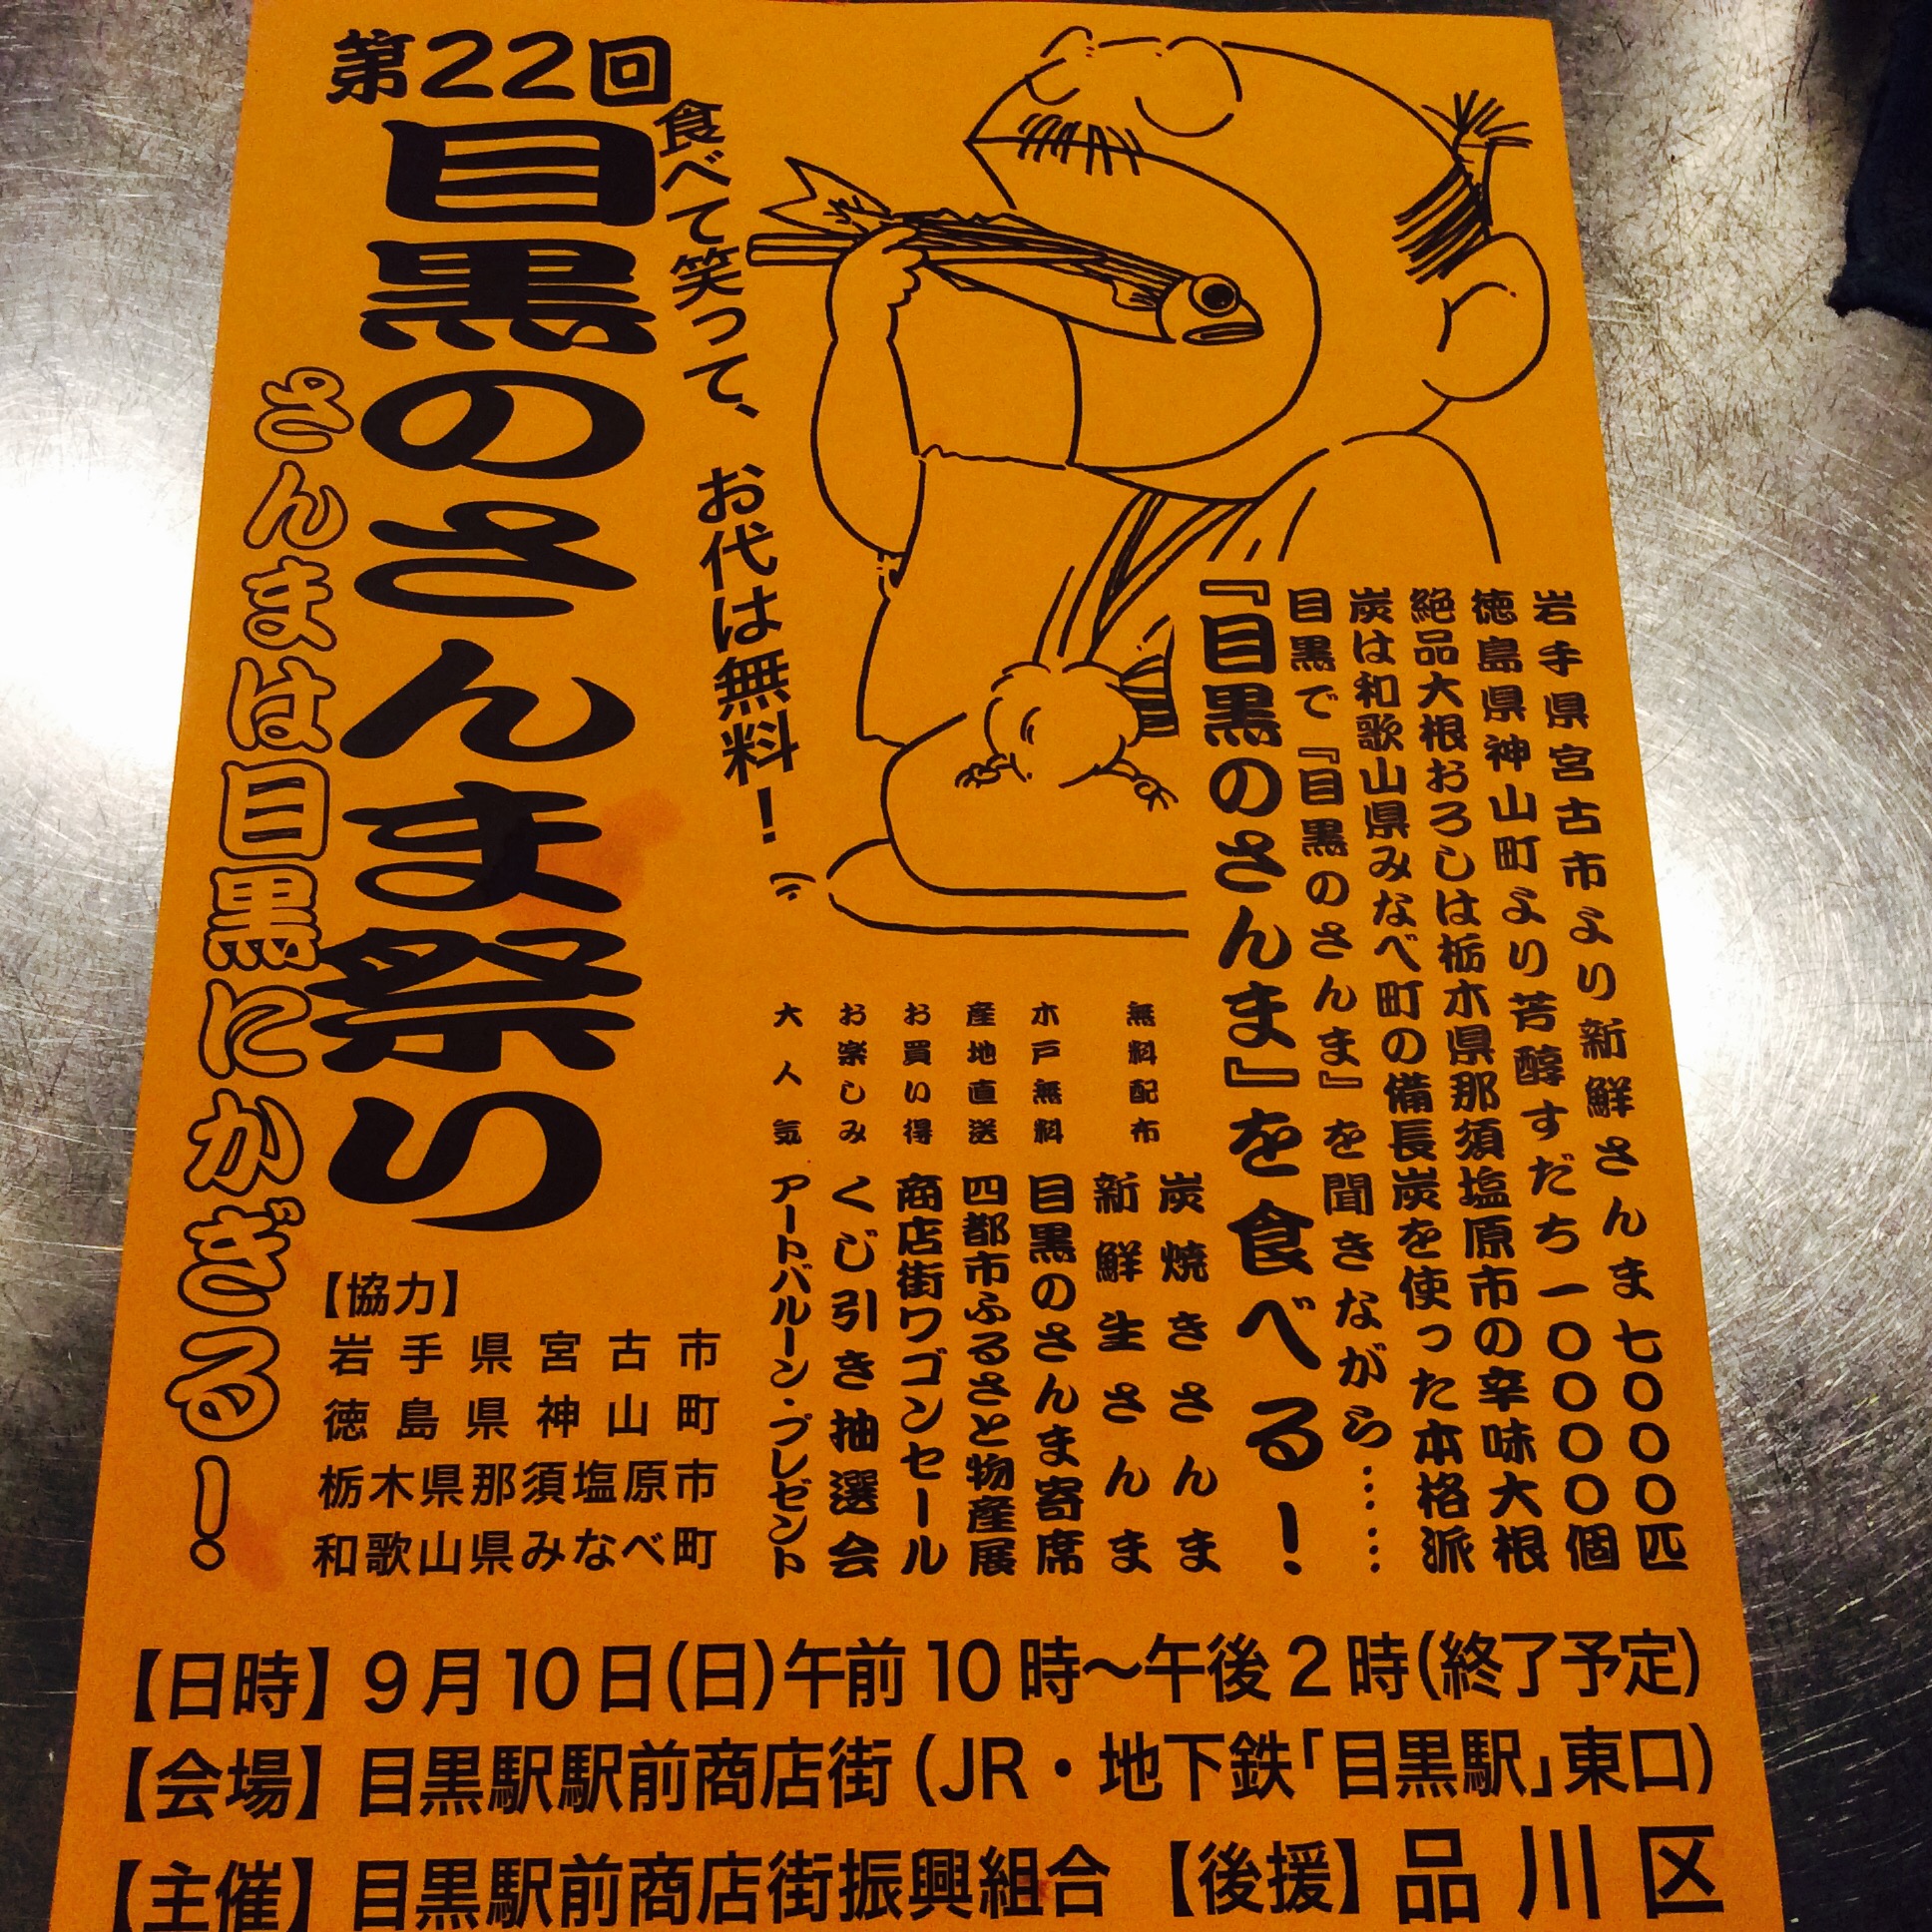 岩手県宮古市より新鮮さんま七〇〇〇匹
徳島県神山町より芳醇すだち一〇〇〇〇個
絶品大根おろしは栃木県那須塩原市の辛味大根
炭は和歌山県みなべ町の備長炭を使った本格派
目黒で『目黒のさんま』を聞きながら……
『目黒のさんま』を食べる!
食べて笑って、お代は無料!
第22回
目黒のさんま祭り
さんまは目黒にかぎる!
無料配布
炭焼きさんま
新鮮生さんま
木戸無料 目黒のさんま寄席
産地直送 四都市ふるさと物産展
お買い得 商店街ワゴンセール
お楽しみ くじ引き抽選会
大人気 アートバルーン・プレゼント
【協力】
岩手県宮古市
徳島県神山町
栃木県那須塩原市
和歌山県みなべ町
【日時】9月10日(日)午前10時〜午後2時(終了予定)
【会場】目黒駅駅前商店街(JR・地下鉄「目黒駅」東口)
【主催】目黒駅前商店街振興組合 【後援】品川区